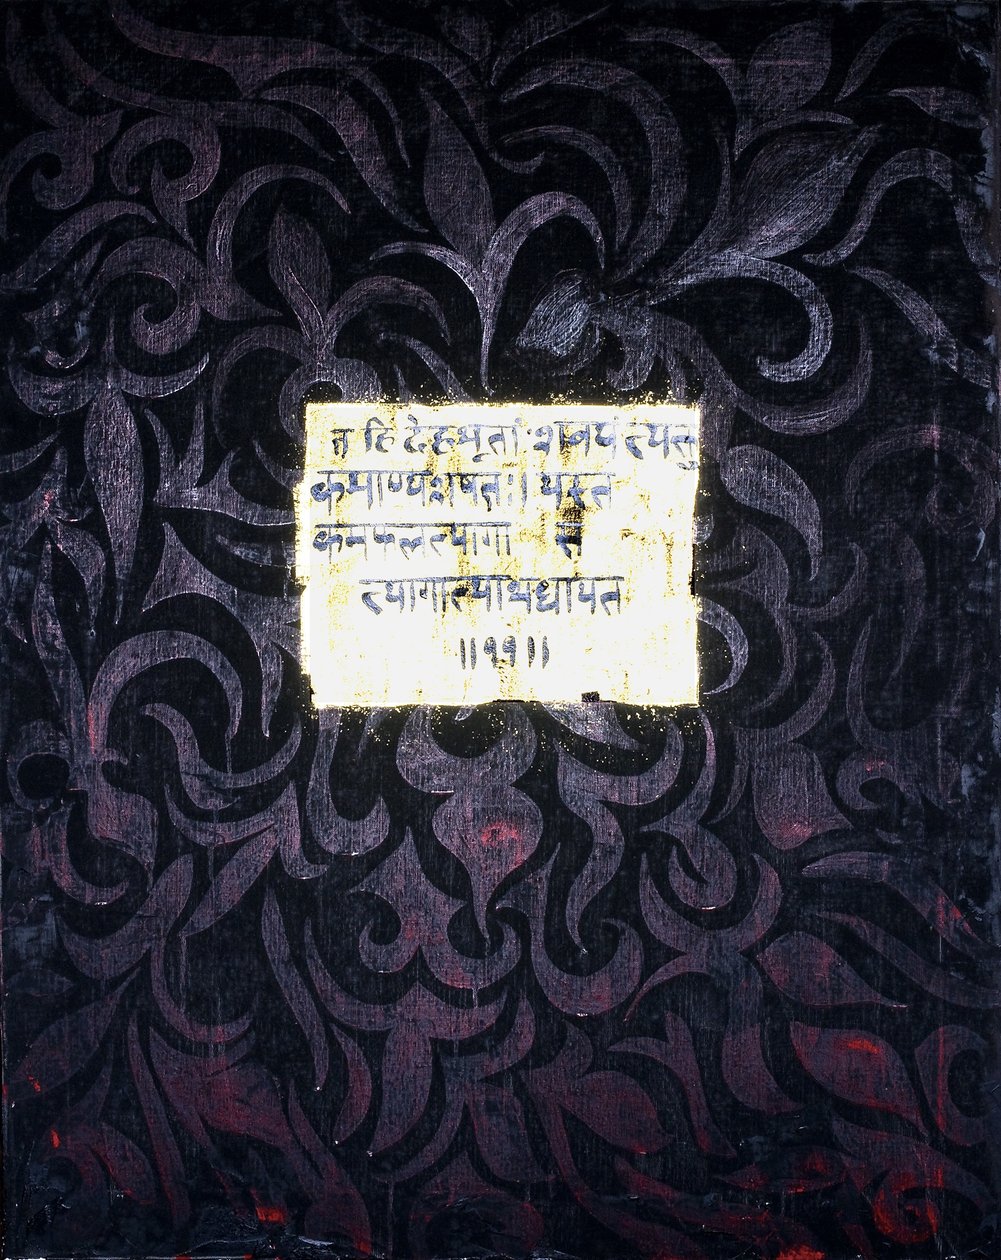 न हि देहभृतां शक्य त्यक्तु
कमाण्यशषतः। यस्त
कमफलत्यागा स
त्यागात्याभधायत
॥११॥